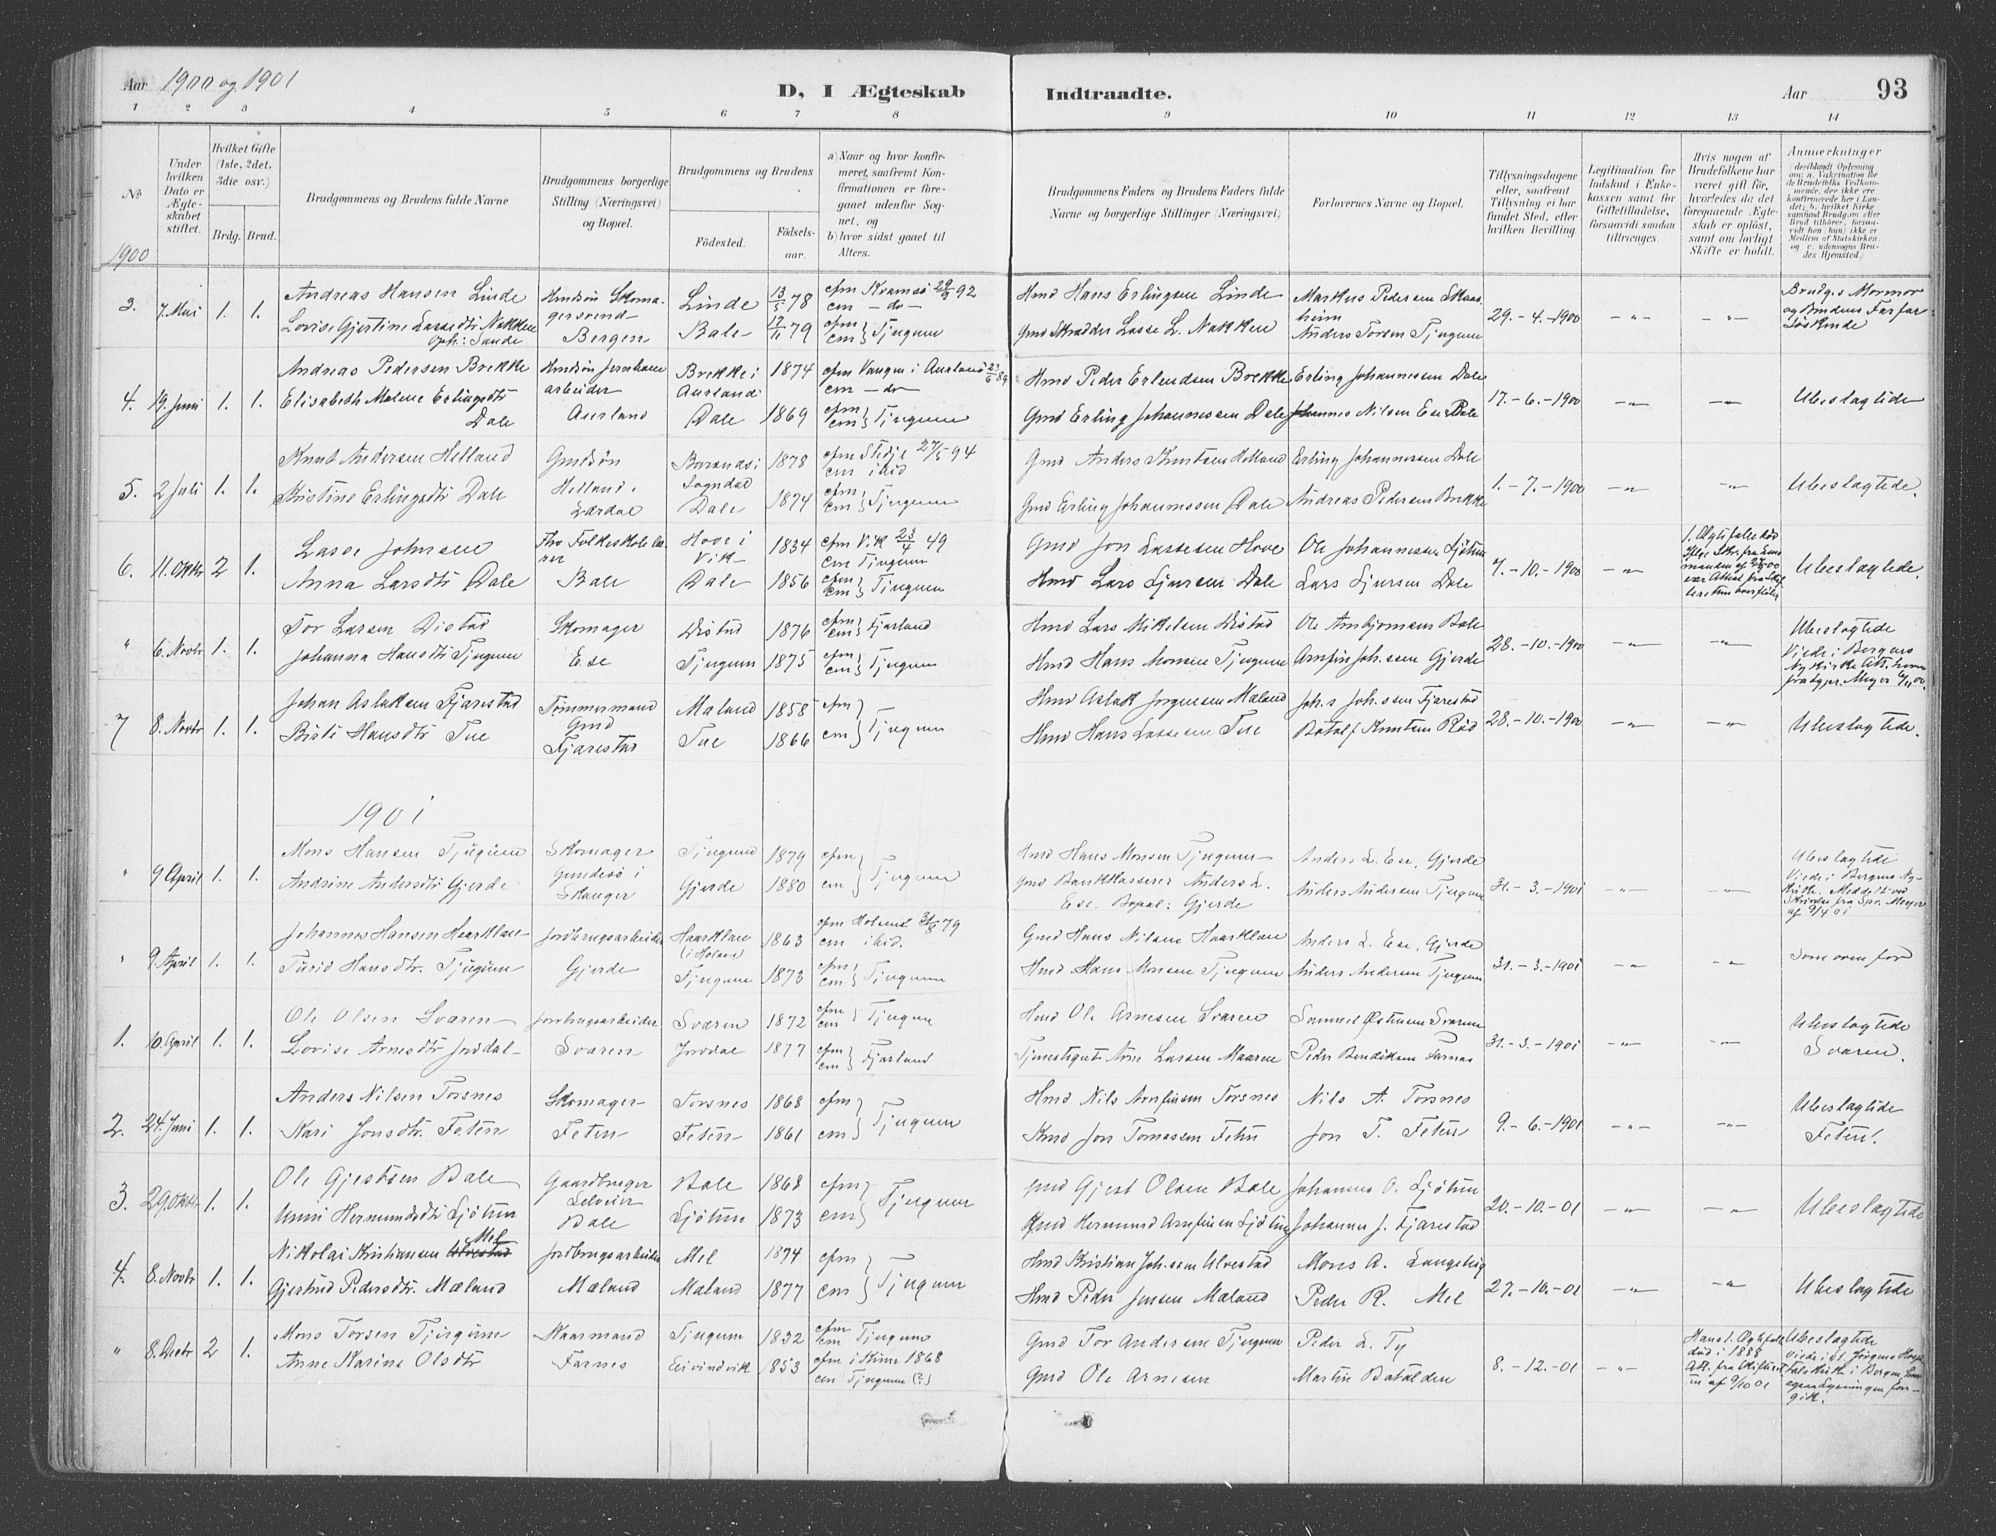 Aar 1900 og 1901
D, I Ægteskab
Indtraadte.
Aar
93
1 2 3 4 5 6 7 8 9 10 11 12 13 14
№
Under hvilken Dato er Ægteskabet stiftet.
Hvilket Gifte (1ste, 2det, 3die osv.)
Brdg. Brud.
Brudgommens og Brudens fulde Navne
Brudgommens borgerlige Stilling (Næringsvei) og Bopæl.
Brudgommens og Brudens
Födested.
Födselsaar.
a) Naar og hvor konfirmeret, saafremt Konfirmationen er foreganet udenfor Sognet, og
b) hvor sidst gaaet til Alters.
Brudgommens Faders og Brudens Faders fulde Navne og borgerlige Stillinger (Næringsvei)
Forlovernes Navne og Bopæl.
Tillysningsdagene eller, saafremt Tillysning ei har fundet Sted, efter hvilken Bevilling.
Legitimation for Indskud i Enkekassen samt for Giftetilladelse, forsaavidt saadan tiltrænges.
Hvis nogen af Brudefolkene har været gift før, hvorledes da det foregaaende Ægteskab er oplöst, samt om lovligt Skifte er holdt.
Anmerkninger
1900
3. 7 Mai 1. 1. Andreas Hansen Linde
Lovise Gjertine Lassedtr Nakken
Oph: Sande
Hmdsön Skomagersvend
Bergen
Linde 13/5 78
Bale 17/11 79
cfm Kvamsö 29/9 92
cm - do -
cfm cm } Tjugum
Hmd Hans Erlingsen Linde
Gmd Skrædder Lasse L. Nakken
Markus Pedersen Skaasheim
Anders Torsen Tjugum
29. - 4. - 1900
Brudgs Mormor og Brudens Farfar Söskende
4. 19. Juni 1. 1. Andreas Pedersen Brekke
Elisabeth Malene Erlingsdtr Dale
Hmdsön Jernbanearbeider
Aurland
Brekke i Aurland 1874
Dale 1869
cfm Vangen i Aurland 23/6 89
cm - do
cfm cm } Tjugum
Hmd Peder Erlendsen Brekke
Gmd Erling Johannessen Dale
Erling Johannessen Dale
Johannes Nilsen Ese Dale
17. - 6. - 1900
Ubeslægtede
5. 2 Juli 1. 1. Knut Andersen Helland
Kristine Erlingsdtr Dale
Gmdsön
Helland. Lærdal
Sogndal 1878
Dale 1874
cfm Stedje 27/5 94
cm ibid
cfm cm } Tjugum
Gmd Anders Knutsen Helland
Gmd Erling Johannessen Dale
Erling Johannessen Dale
Andreas Pedersen Brekke
1. - 7. - 1900
Ubeslægtede.
6. 11. Oktbr 2 1. Lasse Johnsen
Anna Larsdtr Dale
Fhv Folkeskolelærer
Bale
Hove i Vik 1834
Dale 1856
cfm Vik 23/4 49
cm Tjugum
cfm cm } Tjugum
Gmd Jon Lassesen Hove
Hmd Lars Sjursen Dale
Ole Johannessen Sjötun
Lars Sjursen Dale
7. - 10. - 1900
Ubeslægtede.
" 6. Novbr 1. 1. Tor Larsen Distad
Johanna Hansdtr Tjugum
Skomager
Ese
Distad 1876
Tjugum 1875
cfm cm } Fjærland
cfm cm } Tjugum
Hmd Lars Mikelsen Distad
Hmd Hans Monsen Tjugum
Ole Arnbjornsen Bale
Arnfin Joh.sen Gjerde
28. - 10. - 1900
Ubeslægtede
Viede i Bergens Nykirke Att. herom fra Sgpr. Meyer 6/11 00.
7 8. Novbr 1. 1. Johan Aslaksen Fjærestad
Brita Hansdtr Tue
Tömmermand
Gmd
Fjærestad
Mæland 1858
Tue 1866
cfm cm } Tjugum
Hmd Aslak Jorgensen Mæland
Hmd Hans Lassesen Tue
Johs Johssen Fjærestad
Botolf Knutsen Röd
28. - 10. - 1900
Ubeslægtede.
1901
" 9 April 1. 1. Mons Hansen Tjugum
Andrine Andersdtr Gjerde
Skomager
Skanger
Tjugum 1879
Gjerde 1880
cfm cm } Tjugum
Hmd Hans Monsen Tjugum
Gmd Bankkasserer Anders L. Ese. Bopæl: Gjerde
Anders L. Ese. Gjerde
Anders Andersen Tjugum
31. - 3. - 1901
Ubeslægtede
Viede i Bergens Nykirke. Meddelt ved Skrivelse fra Spr. Meyer af 9/4 01
" 9. April 1. 1. Johannes Hansen Haarklau
Turid Hansdtr. Tjugum
Jordbrugsarbeider
Gjerde
Haarklau 1863
Tjugum 1873
cfm Holmed 31/8 79
cm ibid.
cfm cm } Tjugum
Gmd Hans Nilsen Haarklau
Hmd Hans Monsen Tjugum
Anders L. Ese, Gjerde
Anders Andersen Tjugum
31. - 3. - 1901
Som ovenfor
1. 10. April 1. 1. Ole Olsen Sværen
Lovise Arnesdtr Jorddal
Jordbrugsarbeider
Sværen
Sværen 1872
Jorddal 1877
cfm cm } Tjugum
cfm cm } Fjærland
Hmd Ole Arnesen Sværen
Arne Lassen Maaren
Samuel Østensen Sværen
Peder Bendiksen Farnæs
31. - 3. - 1901
Ubeslægtede
Sværen.
2. 24. Juni 1. 1. Anders Nilsen Torsnes
Kari Jonsdtr. Feten
Skomager
Feten
Torsnes 1868
Feten 1861
cfm cm } Tjugum
Hmd Nils Arnfinsen Torsnes
Gmd Jon Tomassen Feten
Nils A. Torsnes
Jon T. Feten
9. - 6. - 1901
Ubeslægtede
Feten.
3. 29. Oktbr. 1. 1. Ole Gjestsen Bale
Unni Hermundsdtr Sjötun
Gaardbruger
Selveier
Bale
Bale 1868
Sjötun 1873
cfm cm } Tjugum
Gmd Gjest Olsen Bale
Gmd Hermund Arnfinsen Sjötun
Johannes O. Sjötun
Johannes J. Fjærestad
20. - 10. - 01
Ubeslægtede
4. 8. Novbr 1. 1. Nikolai Kristiansen Ulvestad Mel
Gjertrud Pedersdtr. Mæland
Jordbrugsarbeider
Mæland
Mel 1874
Mæland 1877
cfm cm } Tjugum
Hmd Kristian Joh.ssen Ulvestad
Hmd Peder Jensen Mæland
Mons A. Langeteig
Peder R. Mel
27. - 10. - 01
Ubeslægtede
" 8. Decbr 2 1. Mons Torsen Tjugum
Anne Karine Olsdtr
Kaarmand
Farnes
Tjugum 1832
Eivindvik 1853
cfm cm Tjugum
cfm i Kinn 1868
cm Tjugum (?)
Gmd Tor Andersen Tjugum
Gmd Ole Arnesen
Peder L. Ty
Martin Batalden
8. - 12. - 01
Hans 1. Ægtefælle död i 1888
Ubeslægtede
Viede i St. Jörgens Hospitalskirke i Bergen,